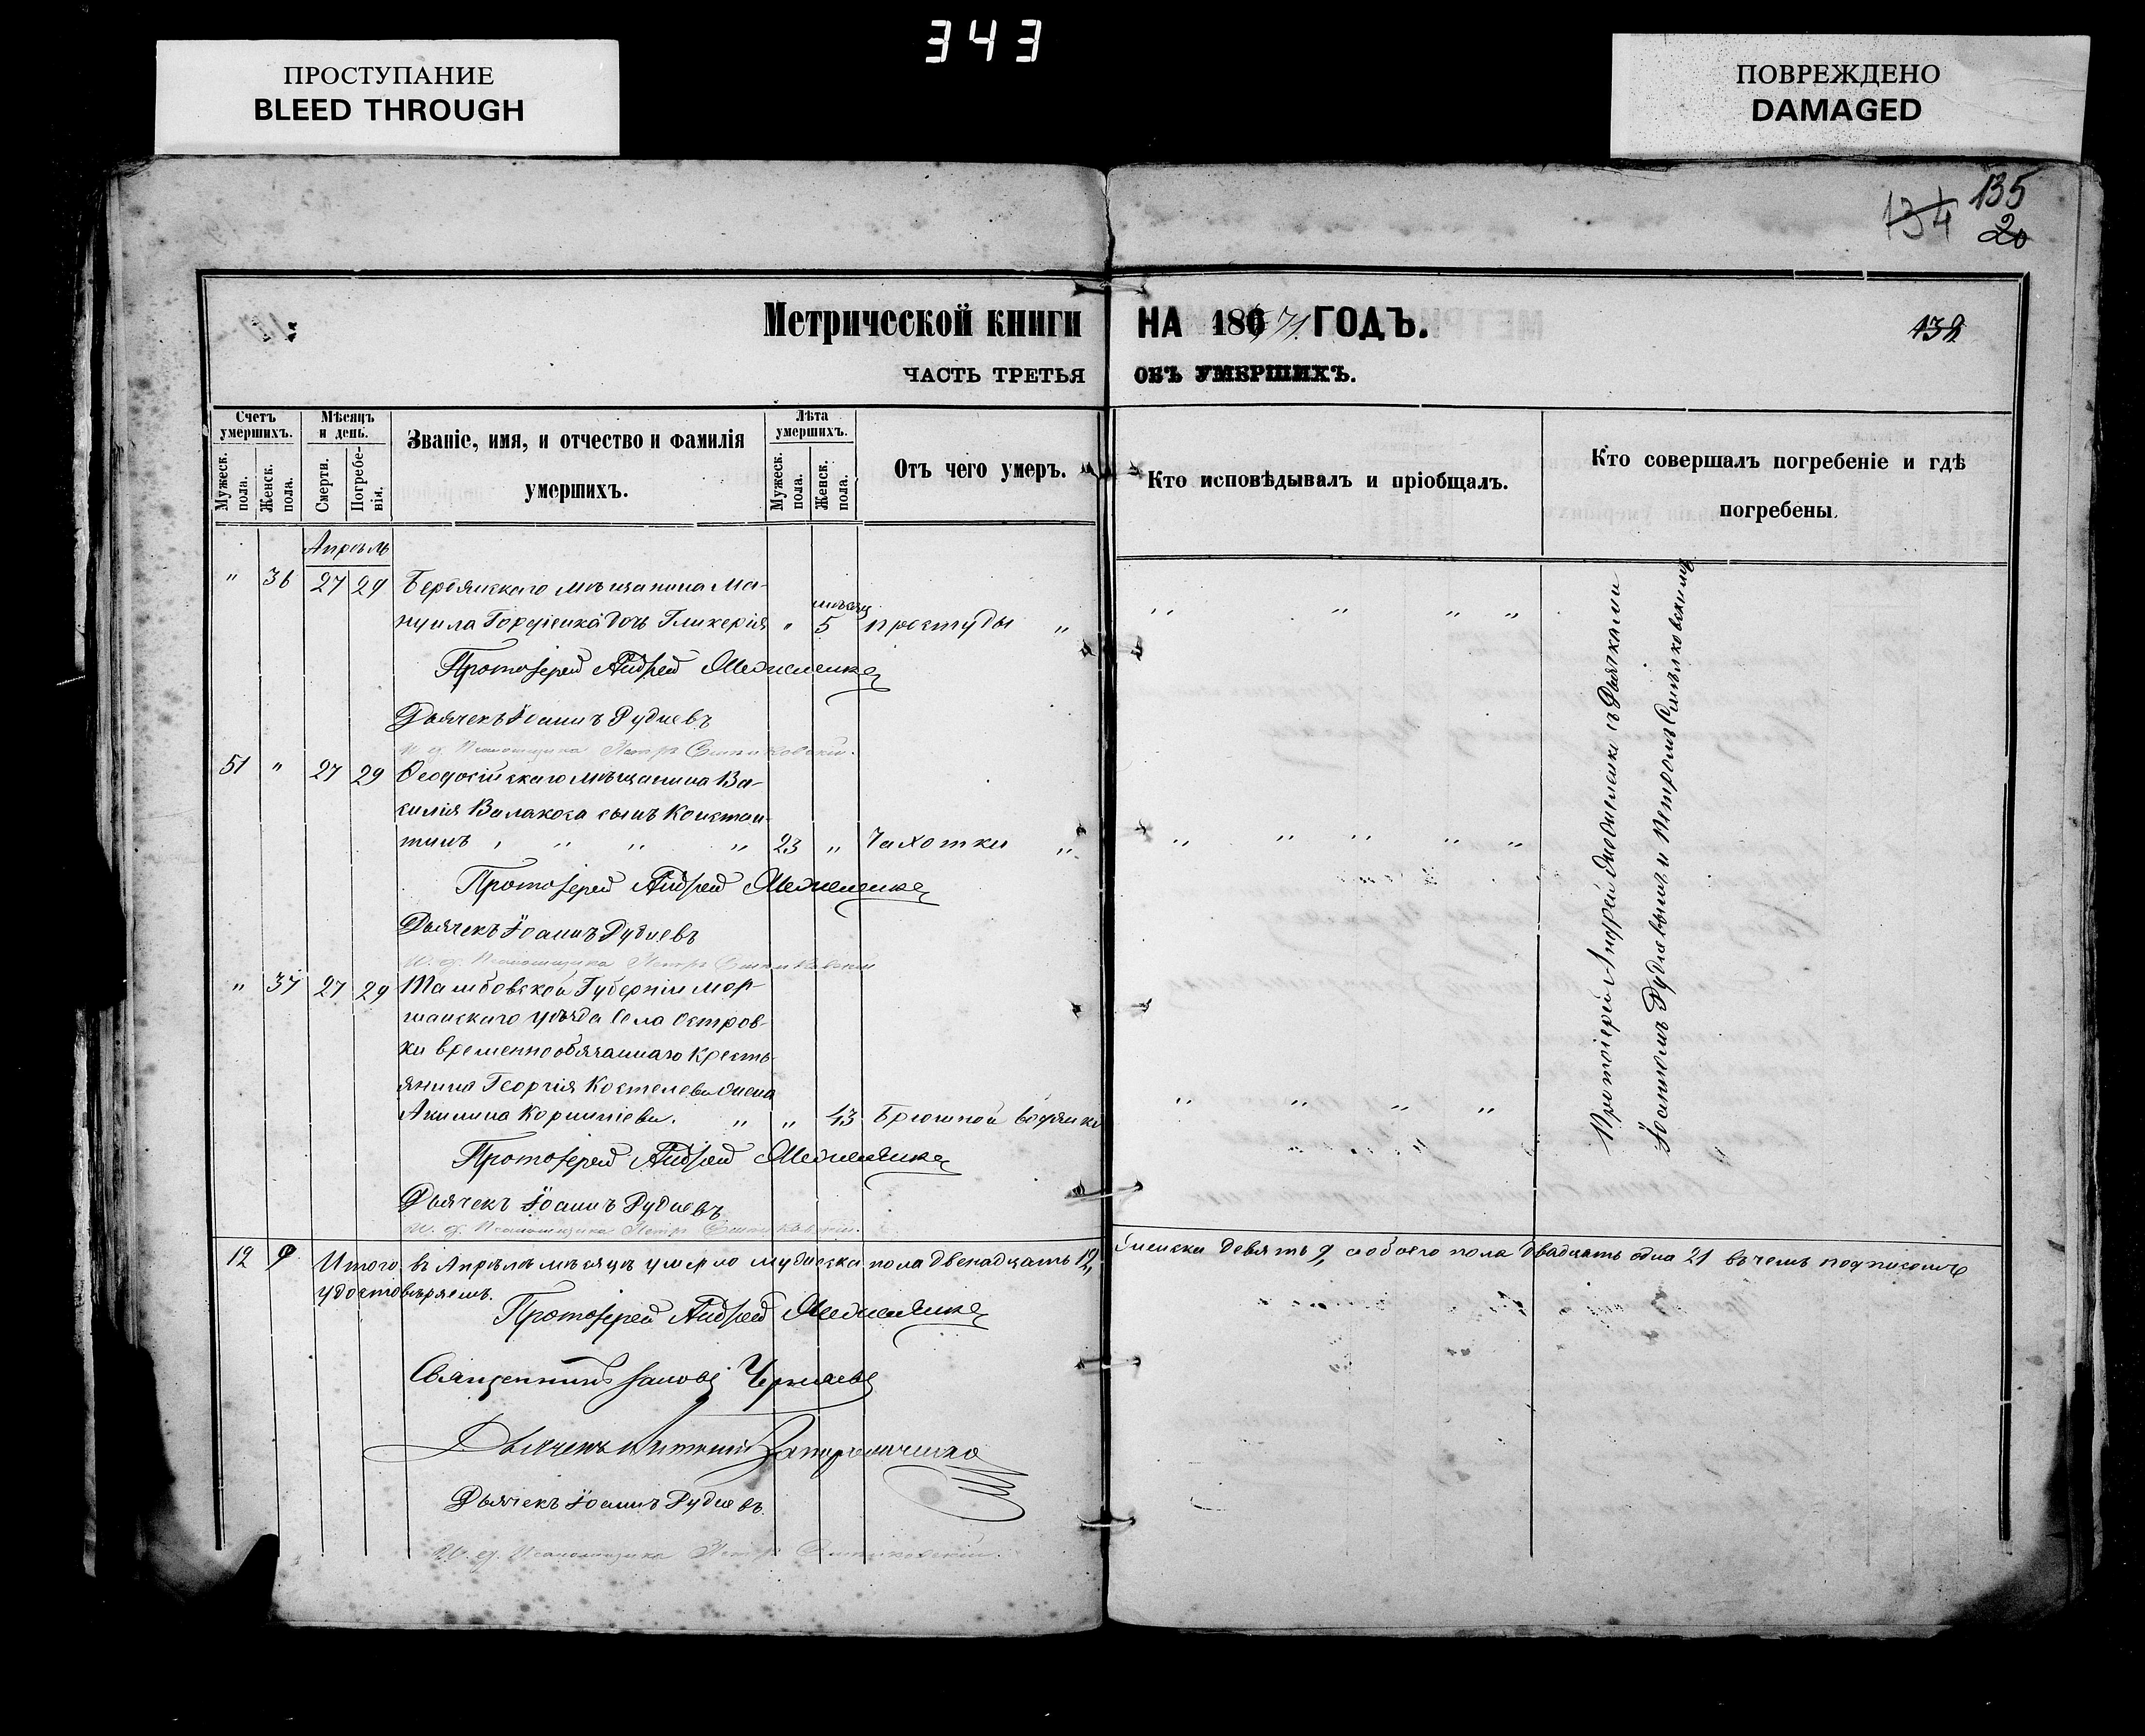 343
ПРОСТУПАНИЕ
BLEED THROUGH
ПОВРЕЖДЕНО
DAMAGED
134 135
20
Метрической книги НА 1871 ГОДЪ.
132
ЧАСТЬ ТРЕТЬЯ ОБЪ УМЕРШИХЪ.
Счетъ умершихъ.
Мужеск. пола.
Женск. пола.
Мѣсяцъ и день.
Смерти.
Погребенія.
Званіе, имя, и отчество и фамилія
умершихъ.
Лѣта умершихъ.
Мужеск. пола.
Женск. пола.
Отъ чего умеръ.
Кто исповѣдывалъ и пріобщалъ.
Кто совершалъ погребеніе и гдѣ
погребены.
Апрѣль
" 36 27 29 Бердянскаго мѣщанина Ма-
мѣсяц
нуила Гордіенка дочь Гликерія " 5 простуды "
Протоіерей Андрей
Дьячекъ Іоаннъ Рудневъ
И. д. Псаломщика Петръ
51 " 27 29 Ѳеодосійскаго мѣщанина Ва-
силія Валакоса сынъ Констан-
тинъ " " " " 23 " Чахотки "
Протоіерей Андрей
Дьячекъ Іоаннъ Рудневъ
И. д. Псаломщика Петръ
" 37 27 29 Тамбовской Губерніи Мор-
шанскаго уѣзда Села Островки
временнообязаннаго Кресть-
янина Георгія жена
Акилина " " 43 Брюшной водянки
Протоіерей Андрей
Дьячекъ Іоаннъ Рудневъ
И. д. Псаломщика Петръ
Протоіерей Андрей съ Дьячками
Іоанномъ Рудневымъ и Петромъ
12 9 Итого въ Апрѣлѣ мѣсяцѣ умерло мужеска пола двенадцать 12, женска девять 9, а обоего пола двадцать одна 21 въ чемъ подписомъ
удостовѣряемъ.
Протоіерей Андрей
Священникъ Чернявъ
Дьячекъ
Дьячекъ Іоаннъ Рудневъ.
И. д. Псаломщика Петръ